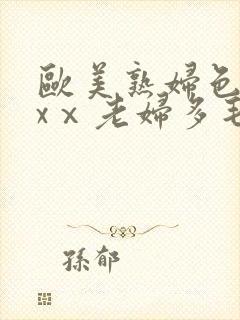 歐美熟婦色
x x 老婦多毛
孫郁